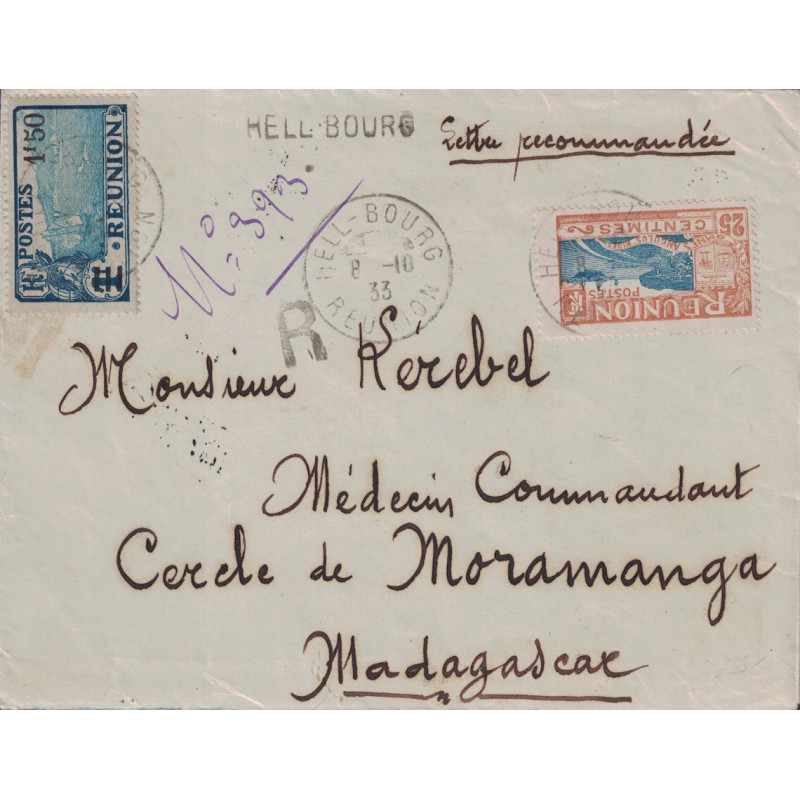 POSTES 1F50
RÉUNION
HELL-BOURG
Lettre recommandée
N° 393
HELL-BOURG
8 -10
33
RÉUNION
R
25
CENTIMES
POSTES
RÉUNION
Monsieur Kerebel
Médecin Commandant
Cercle de Moramanga
Madagascar